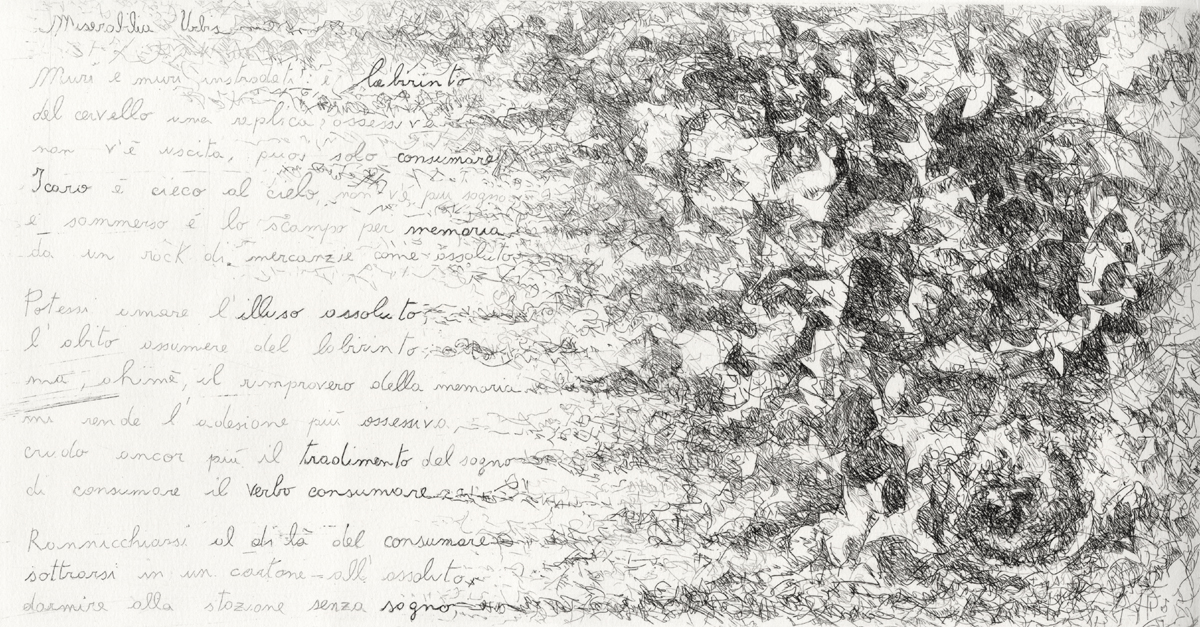 Miserabilia Urbs
Muri e muri instradati: è labirinto
del cervello una replica, ossessiva
non v'è uscita, puoi solo consumare,
Icaro è cieco al cielo, non v'è più sogno
e sommerso è lo scampo per memoria
da un rock di mercanzie come assoluto
Potessi umare l'illuso assoluto,
l'abito assumere del labirinto
ma, ahimè, il rimprovero della memoria
mi rende l'adesione più ossessiva
crudo ancor più il tradimento del sogno
di consumare il verbo consumare
Rannicchiarsi al di là del consumare
sottrarsi in un cartone all'assoluto
dormire alla stazione senza sogno,